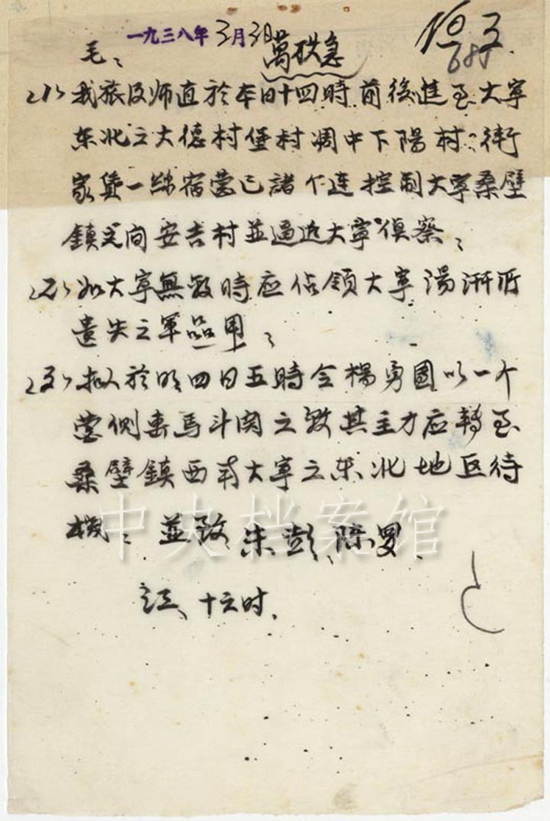 一九三八年3月3日 萬砄急 No 3.
685
毛：
(1)、我旅及师直於本日十四時前後進至大寧
东北之大德村堡村调中下陽村、衛
家堡一線宿营已諸個连控制大寧桑壁
鎮之间安吉村並逼近大寧偵察：
(2)、如大寧無敌時应佔领大寧湯
遺失之軍品用：
(3)、拟於明四日五時令楊勇團以一个
营侧击馬斗関之敌其主力应轉至
桑壁鎮西南大寧之东北地区待
機：並致朱彭、陈罗、
江、十六时.
中央档案馆